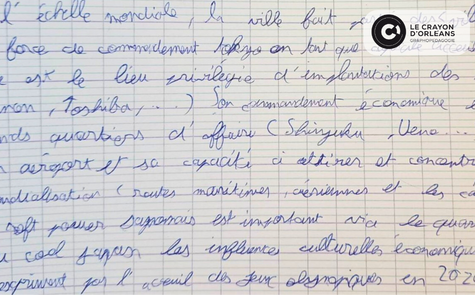 l'échelle mondiale, la ville fait
force de commandement tokyo en tant que
est le lieu privilégié d'implantations des
non, Toshiba, ...) Son commandement économique
nds quartiers d'affaire (Shinjuku, Ueno...
aéroport et sa capacité à attirer et concentr
ndialisation (routes maritimes, aériennes et les
soft power japonais est important via le quar
cool japan les influences culturelles economique
expriment par l'acceuil des jeux olympiques en 202
LE CRAYON
D'ORLEANS
GRAPHOPEDAGOGIE